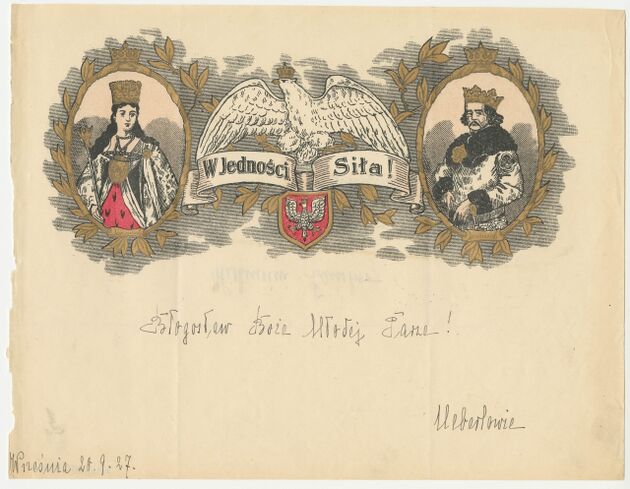 W Jedności Siła!
Błogosław Boże Młodej Parze!
Września 20.9.27.